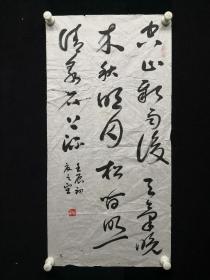 空山新雨後天氣晚
来秋明月松間照
清泉石上流
壬辰初